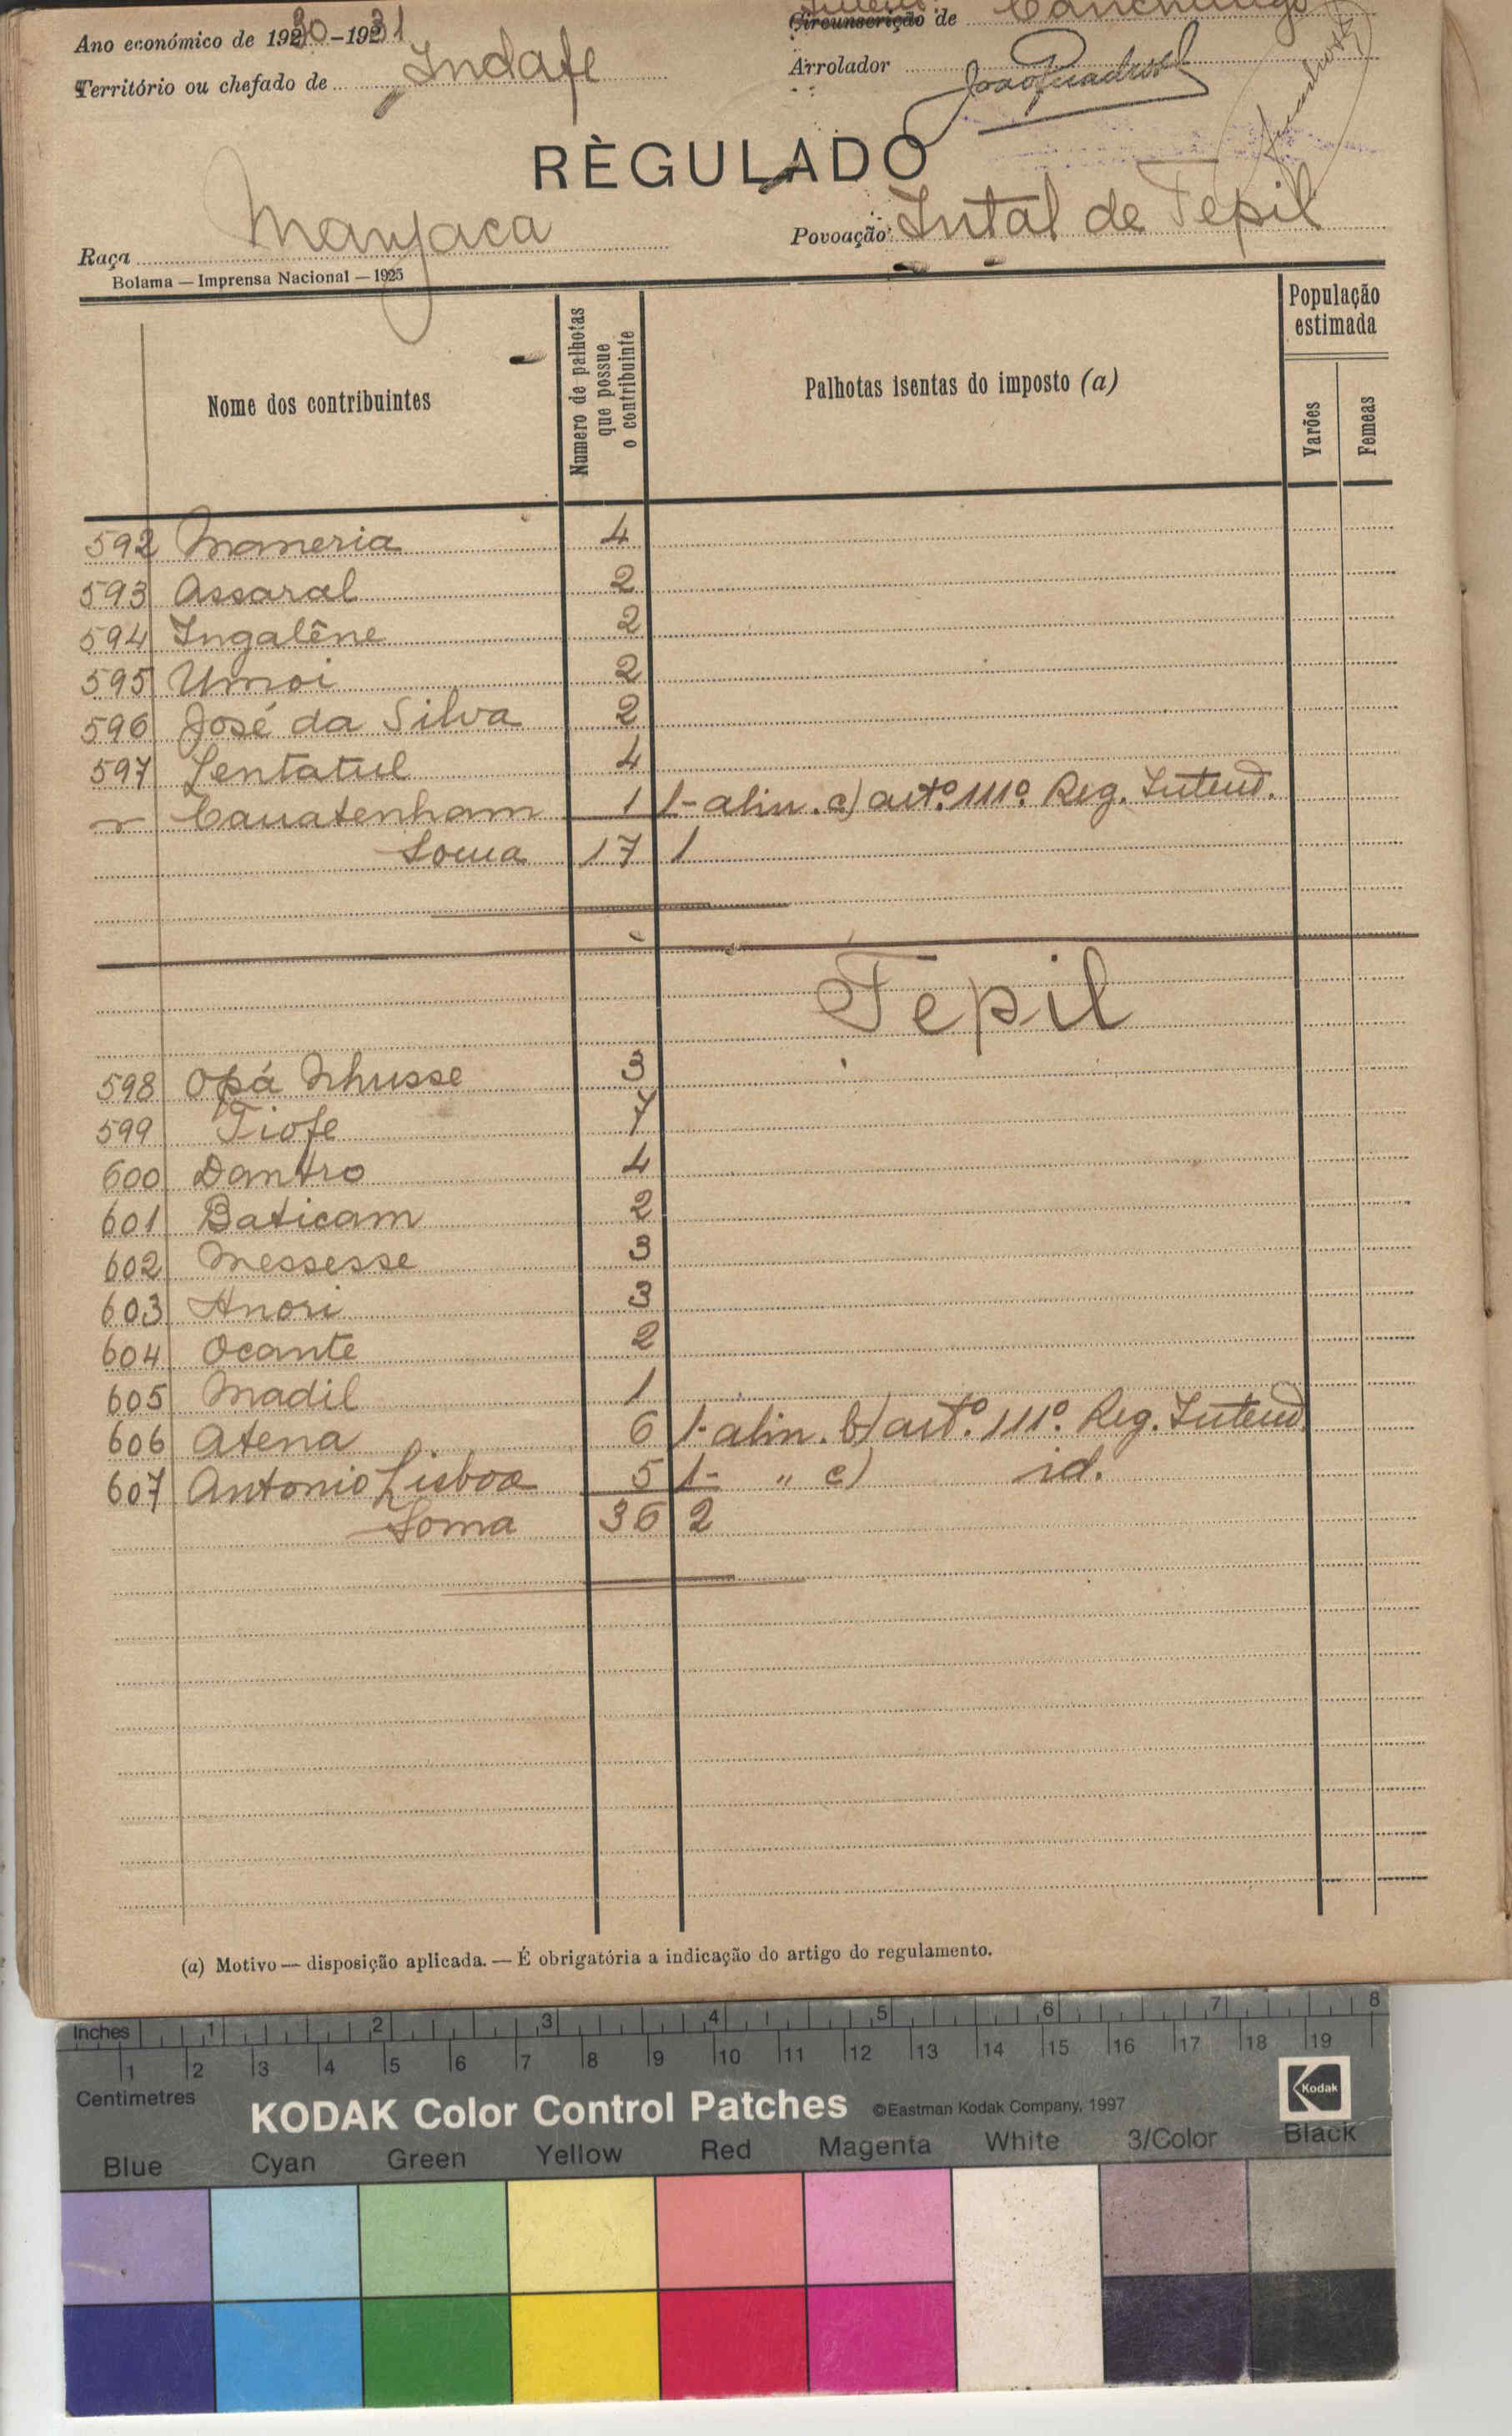 Ano económico de 1930-1931
Circunscrição de Canchungo
Território ou chefado de Indafe
Arrolador
RÈGULADO
Raça Manjaca
Povoação: Intal de Tepil
Bolama — Imprensa Nacional — 1925
Nome dos contribuintes
Numero de palhotas que possue o contribuinte
Palhotas isentas do imposto (a)
População estimada
Varões
Femeas
592 Maneria 4
593 Assaral 2
594 Ingalêne 2
595 Umoi 2
596 José da Silva 2
597 Lentatul 4
Cauatenham 1 1- alin. c) artº. 111º. Reg. Intend.
Soma 17 1
Tepil
598 Opá Nhusse 3
599 Tiofe 7
600 Dantro 4
601 Baticam 2
602 Messesse 3
603 Anori 3
604 Ocante 2
605 Madil 1
606 Atena 6 1- alin. b) artº. 111º. Reg. Intend.
607 Antonio Lisboa 5 1- " c) id.
Soma 36 2
(a) Motivo — disposição aplicada. — É obrigatória a indicação do artigo do regulamento.
Inches 1 2 3 4 5 6 7 8
1 2 3 4 5 6 7 8 9 10 11 12 13 14 15 16 17 18 19
Centimetres
KODAK Color Control Patches ©Eastman Kodak Company, 1997 Kodak
Blue Cyan Green Yellow Red Magenta White 3/Color Black